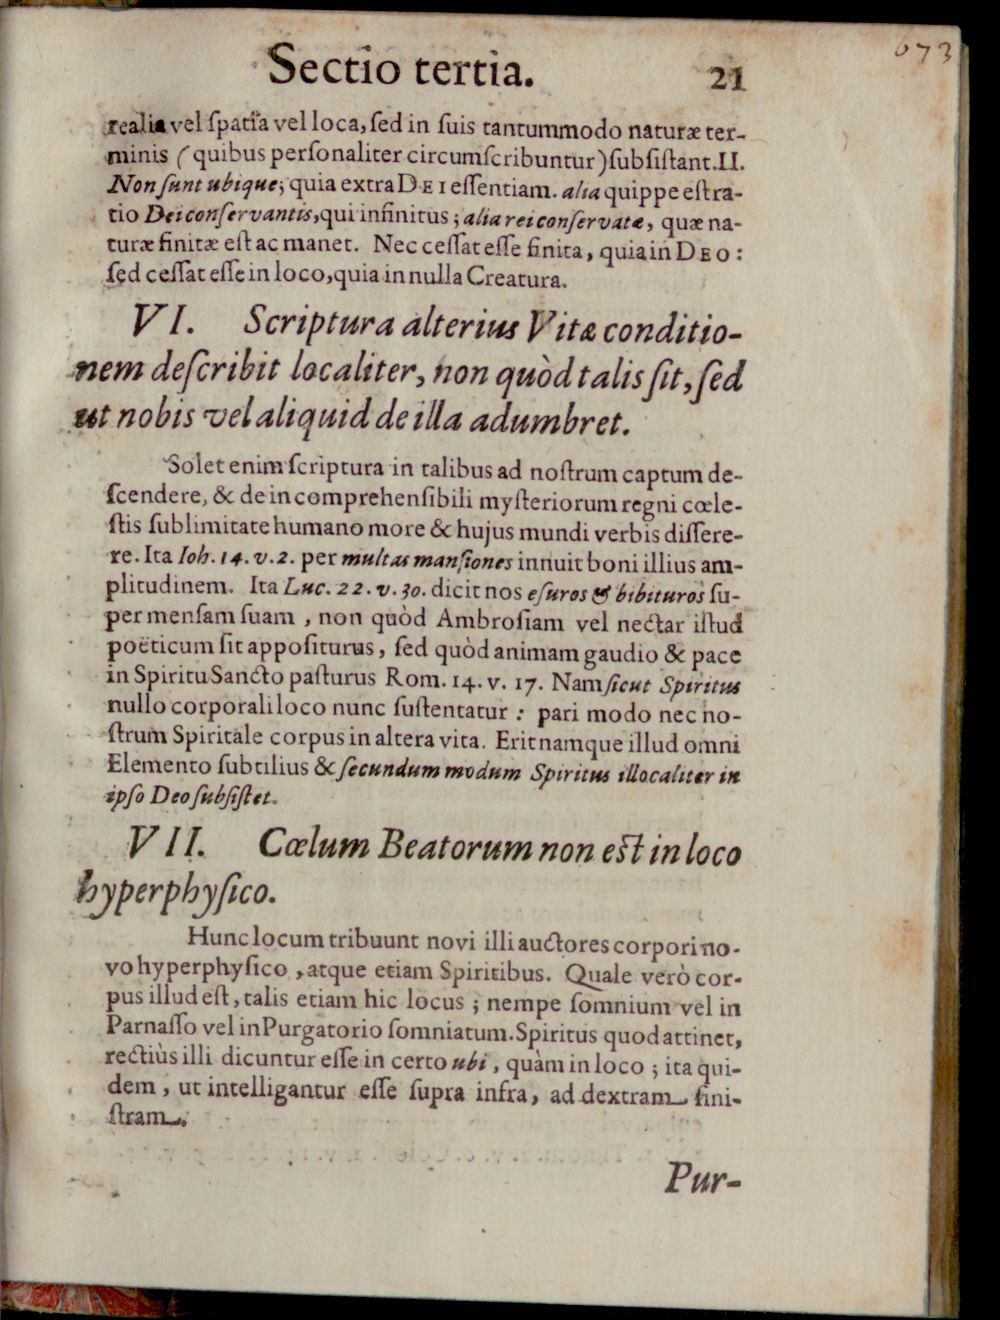 673
Sectio tertia. 21
realia vel spatia vel loca, sed in suis tantummodo naturæ ter-
minis (quibus personaliter circumscribuntur) subsistant. II.
Non sunt ubique; quia extra DEI essentiam. alia quippe est ra-
tio Dei conservantis, qui infinitus; alia rei conservatæ, quæ na-
turæ finitæ est ac manet. Nec cessat esse finita, quia in DEO:
sed cessat esse in loco, quia in nulla Creatura.
VI. Scriptura alterius Vitæ conditio-
nem describit localiter, non quòd talis sit, sed
ut nobis vel aliquid de illa adumbret.
Solet enim scriptura in talibus ad nostrum captum de-
scendere, & de incomprehensibili mysteriorum regni cœle-
stis sublimitate humano more & hujus mundi verbis dissere-
re. Ita Ioh. 14. v. 2. per multas mansiones innuit boni illius am-
plitudinem. Ita Luc. 22. v. 30. dicit nos esuros & bibituros su-
per mensam suam, non quòd Ambrosiam vel nectar istud
poëticum sit appositurus, sed quòd animam gaudio & pace
in Spiritu Sancto pasturus Rom. 14. v. 17. Nam sicut Spiritus
nullo corporali loco nunc sustentatur: pari modo nec no-
strum Spiritale corpus in altera vita. Erit namque illud omni
Elemento subtilius & secundum modum Spiritus illocaliter in
ipso Deo subsistet.
VII. Cœlum Beatorum non est in loco
hyperphysico.
Hunc locum tribuunt novi illi auctores corpori no-
vo hyperphysico, atque etiam Spiritibus. Quale verò cor-
pus illud est, talis etiam hic locus; nempe somnium vel in
Parnasso vel in Purgatorio somniatum. Spiritus quod attinet,
rectiùs illi dicuntur esse in certo ubi, quàm in loco; ita qui-
dem, ut intelligantur esse supra infra, ad dextram sini-
stram.
Pur-